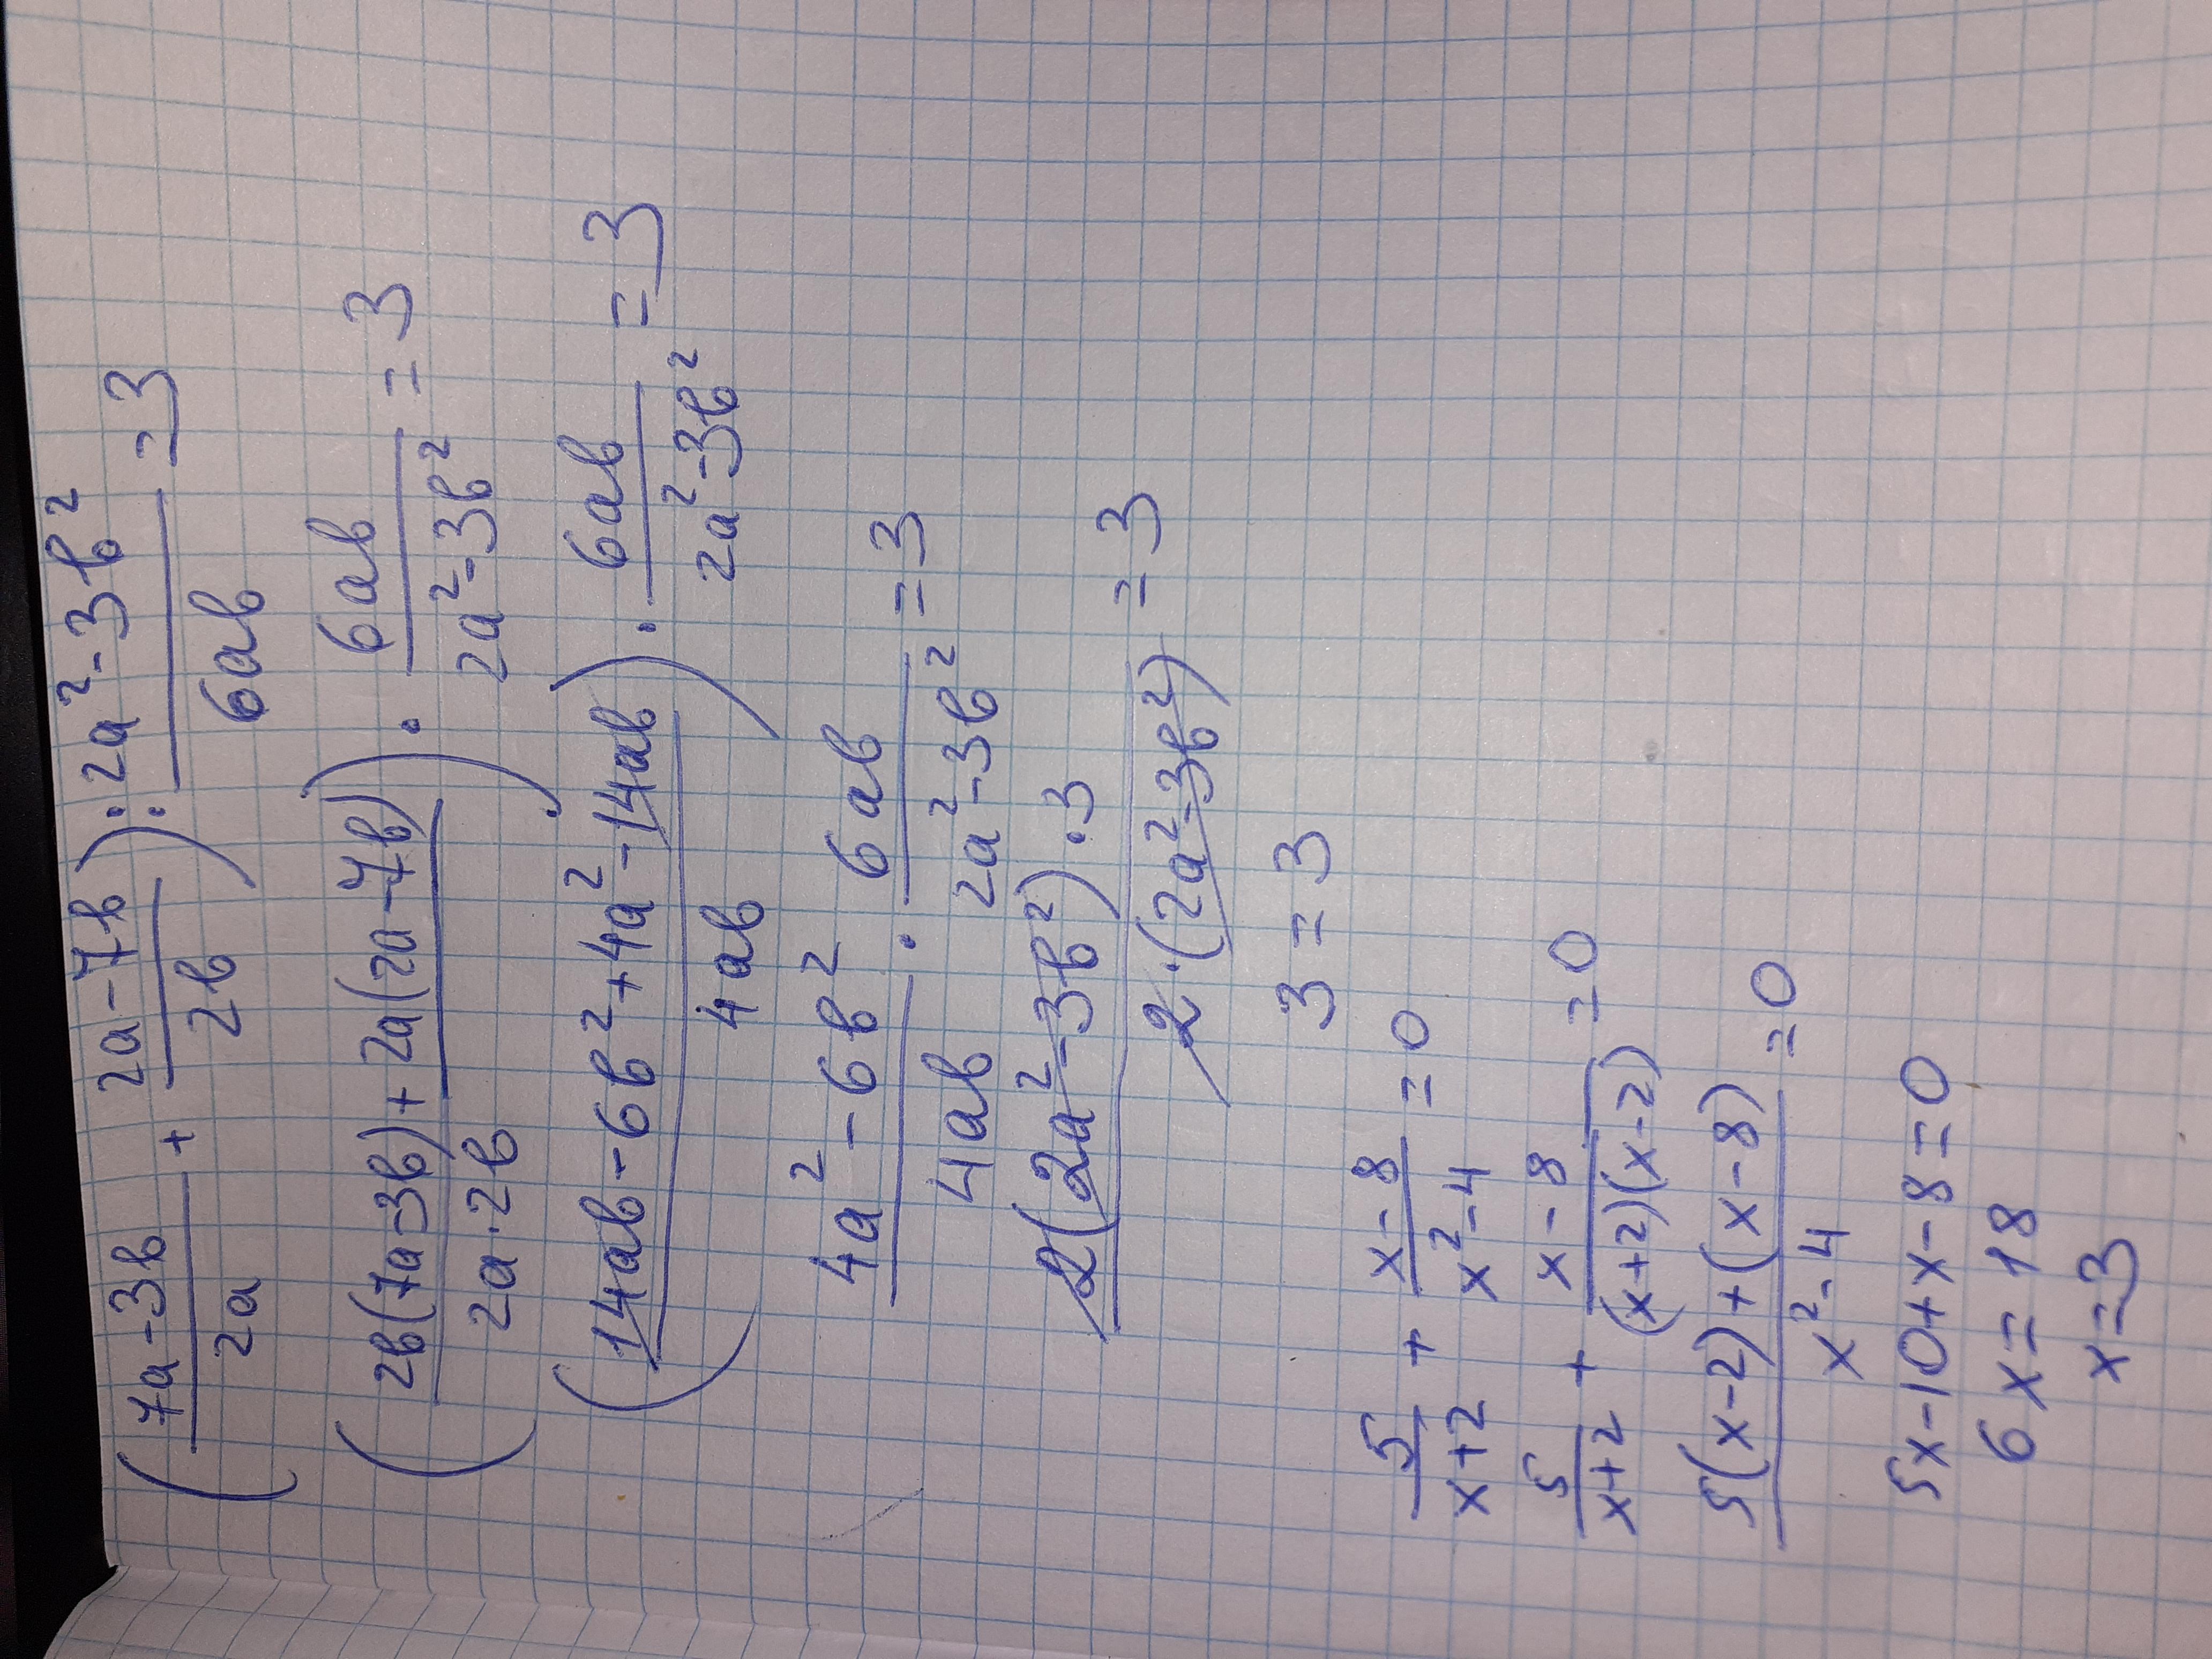 (7a-3b/2a + 2a-7b/2b) : 2a²-3b²/6ab = 3
(2b(7a-3b)+2a(2a-7b)/2a·2b) · 6ab/2a²-3b² = 3
(14ab-6b²+4a²-14ab/4ab) · 6ab/2a²-3b² = 3
4a²-6b²/4ab · 6ab/2a²-3b² = 3
2(2a²-3b²)·3/2·(2a²-3b²) = 3
3 = 3
5/x+2 + x-8/x²-4 = 0
5/x+2 + x-8/(x+2)(x-2) = 0
5(x-2)+(x-8)/x²-4 = 0
5x-10+x-8=0
6x=18
x=3